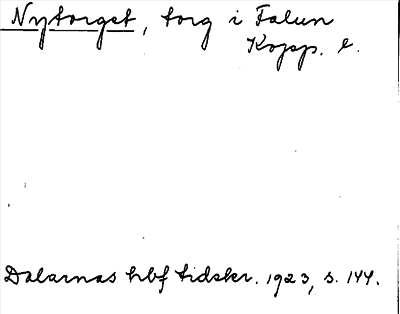 Nytorget, torg i Falun
Kopp. l.
Dalarnas hbf tidskr. 1923, s. 144.